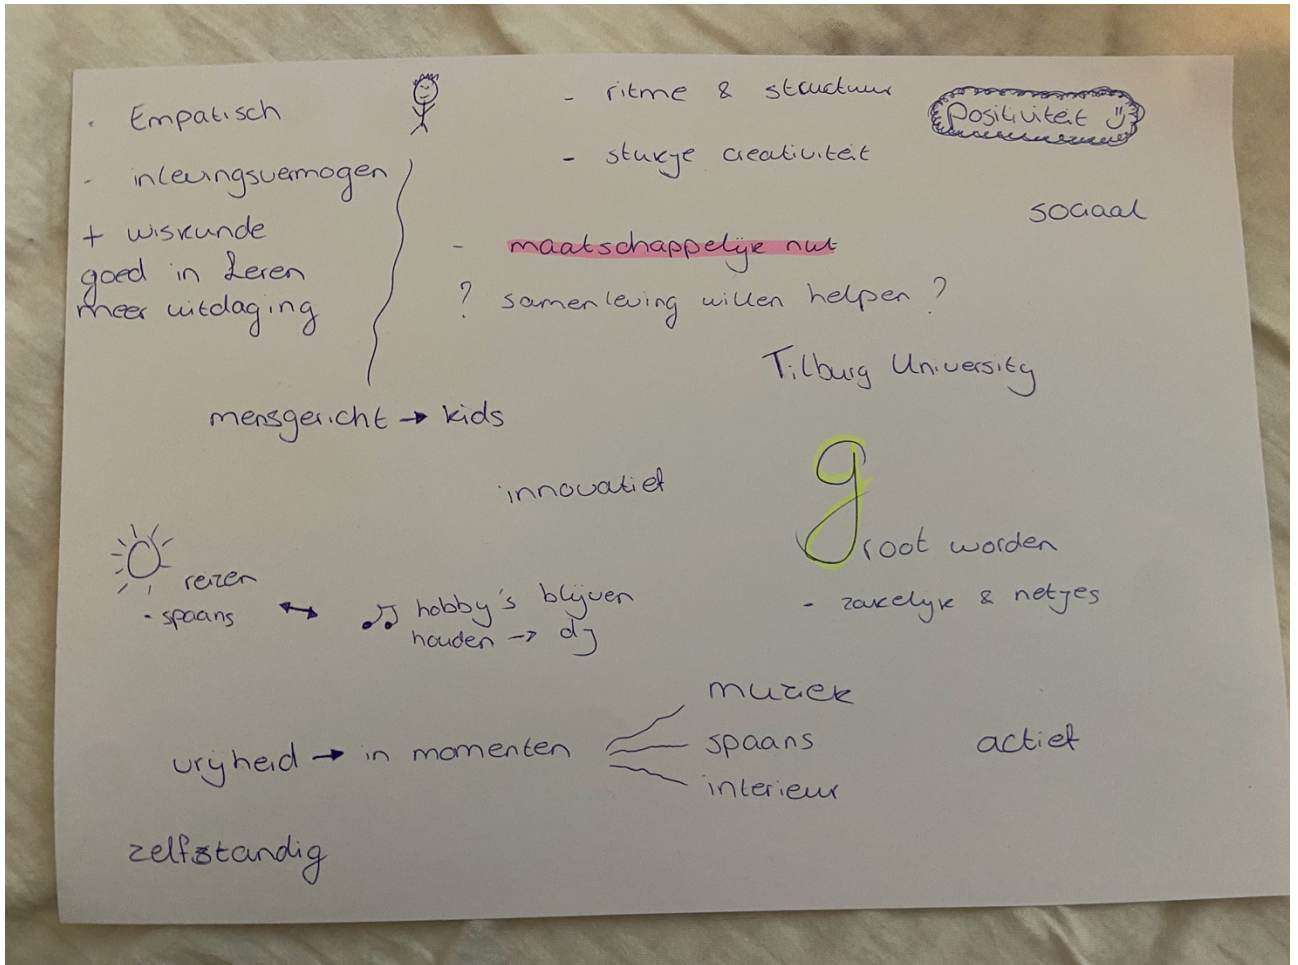 - Empatisch
- inlevingsvermogen
+ wiskunde
goed in Leren
meer uitdaging
- ritme & structuur
- stukje creativiteit
positiviteit
sociaal
- maatschappelijk nut
? samenleving willen helpen ?
Tilburg University
mensgericht → kids
innovatief
groot worden
- zakelijk & netjes
reizen
- spaans ↔ ♫ hobby's blijven
houden → dj
vrijheid → in momenten
muziek
spaans
interieur
actief
zelfstandig